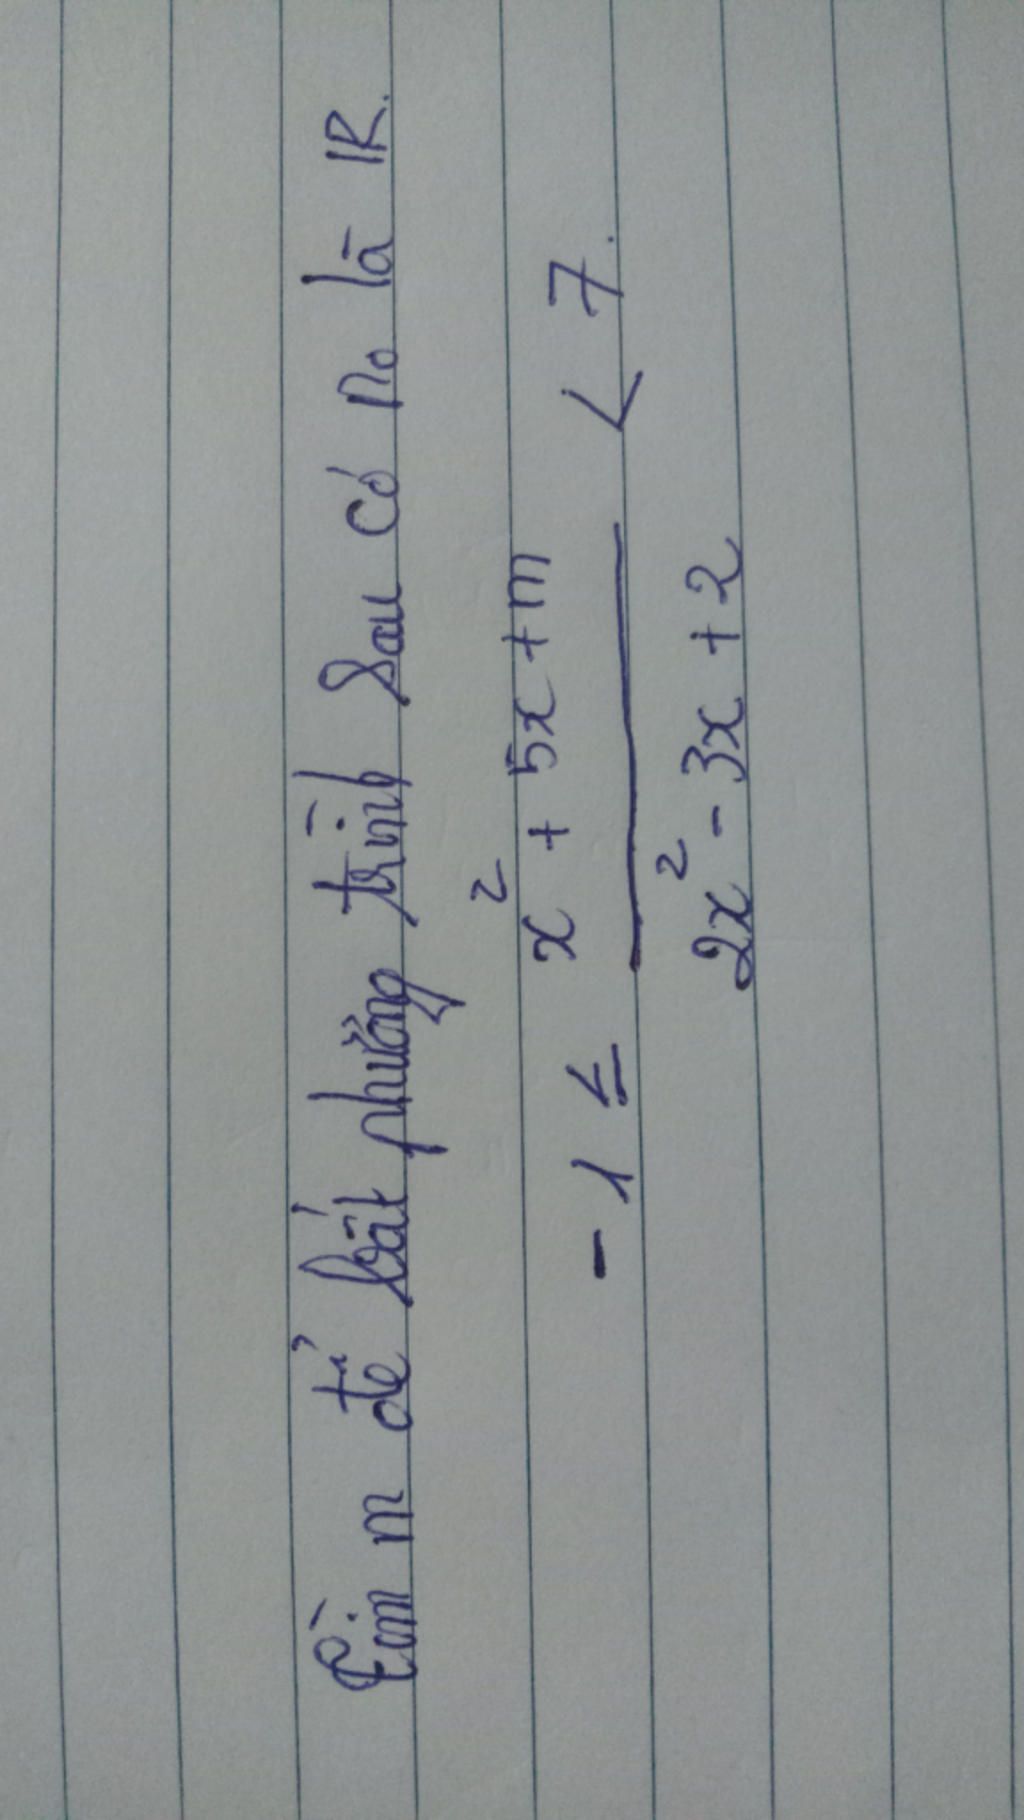 Tìm m để bất phương trình sau có no là IR.
- 1 ≤ (x² + 5x + m) / (2x² - 3x + 2) < 7.